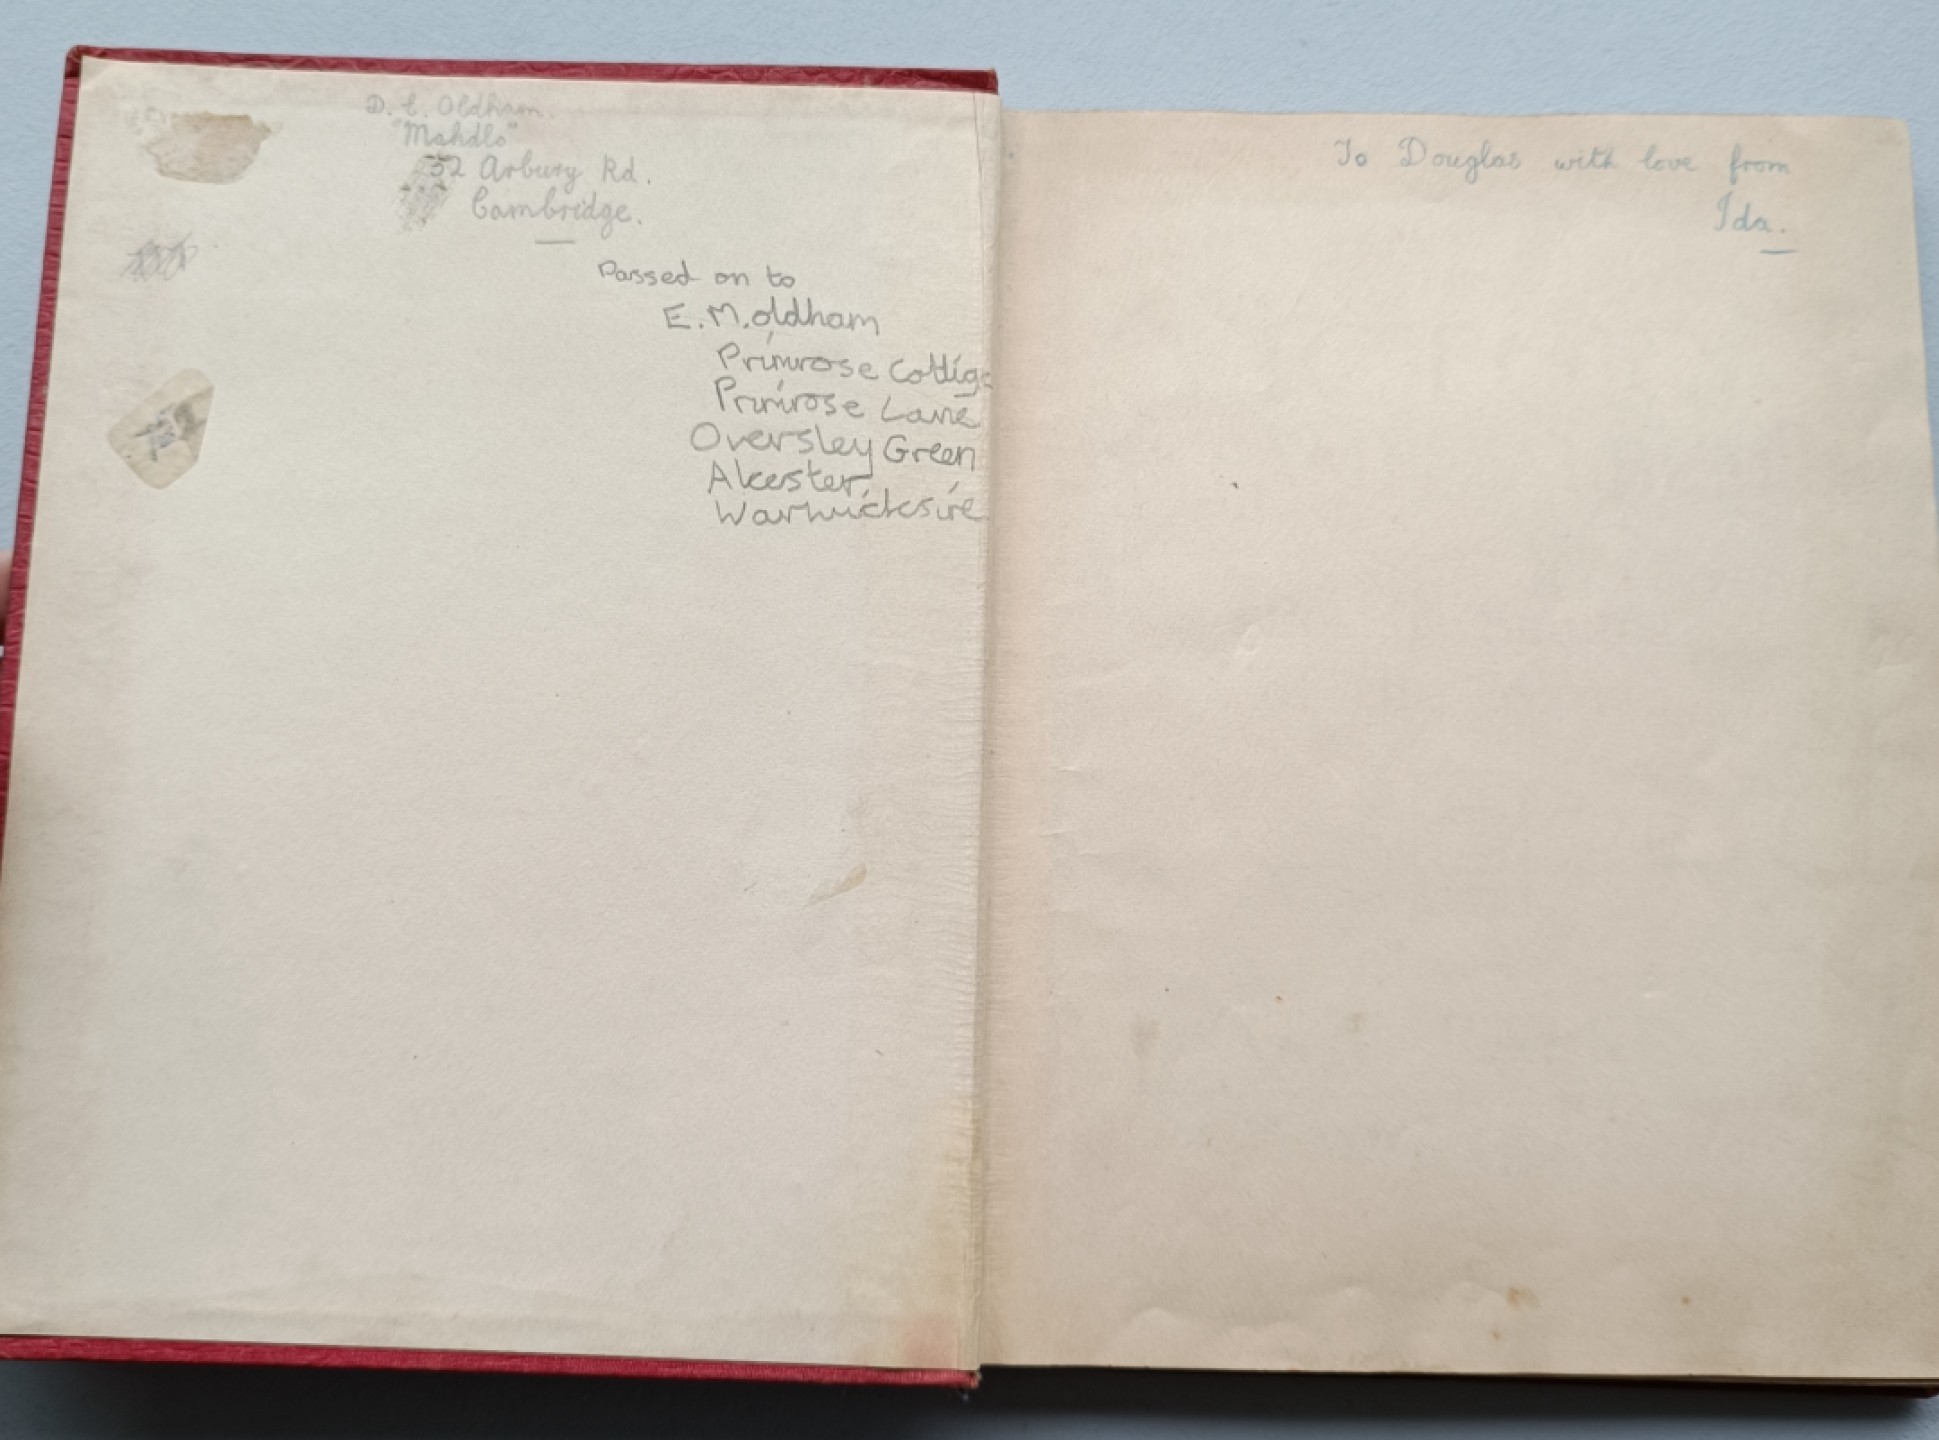 D. E. Oldham.
"Mahdlo"
52 Arbury Rd.
Cambridge.
Passed on to
E.M.oldham
Primrose Cottige
Primrose Lane
Oversley Green
Alcester,
Warwicksire
To Douglas with love from
Ida.